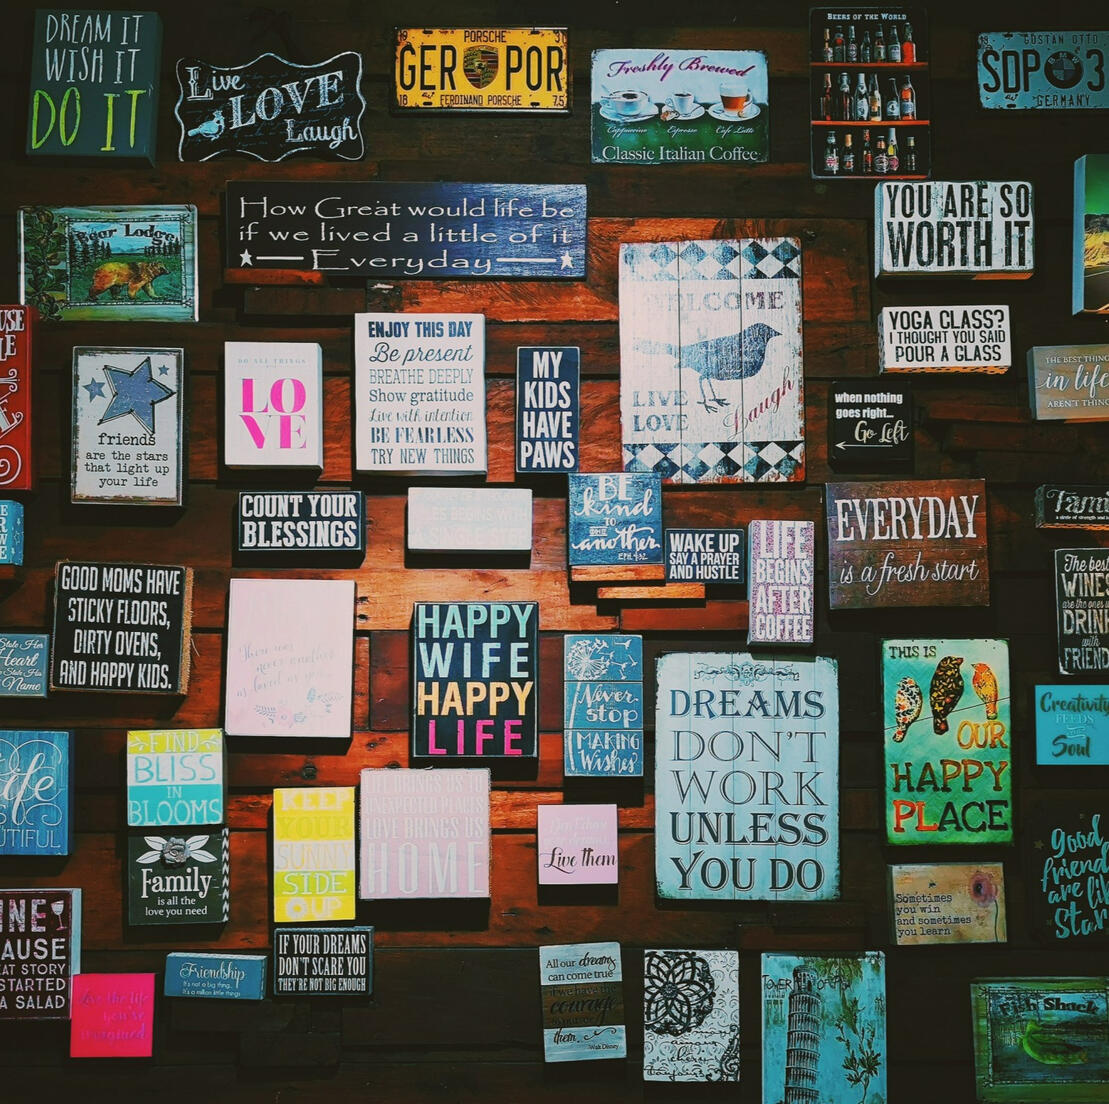 DREAM IT
WISH IT
DO IT
Live
LOVE
Laugh
PORSCHE
GER POR
18 FERDINAND PORSCHE 75
Freshly Brewed
Cappuccino Espresso Cafe Latte
Classic Italian Coffee
BEERS OF THE WORLD
GUSTAN OTTO
SDP 3
GERMANY
Bear Lodge
How Great would life be
if we lived a little of it
Everyday
YOU ARE SO
WORTH IT
WELCOME
LIVE
LOVE
Laugh
YOGA CLASS?
I THOUGHT YOU SAID
POUR A GLASS
THE BEST THING
in life
AREN'T THING
friends
are the stars
that light up
your life
DO ALL THINGS
LO
VE
ENJOY THIS DAY
Be present
BREATHE DEEPLY
Show gratitude
Live with intention
BE FEARLESS
TRY NEW THINGS
MY
KIDS
HAVE
PAWS
when nothing
goes right...
Go Left
COUNT YOUR
BLESSINGS
BE
kind
TO
ONE
another
EPH. 4:32
WAKE UP
SAY A PRAYER
AND HUSTLE
LIFE
BEGINS
AFTER
COFFEE
EVERYDAY
is a fresh start
GOOD MOMS HAVE
STICKY FLOORS,
DIRTY OVENS,
AND HAPPY KIDS.
Stole My
Heart
Stole Her
Name
There was
never another
as loved as you
HAPPY
WIFE
HAPPY
LIFE
Never
stop
MAKING
Wishes
DREAMS
DON'T
WORK
UNLESS
YOU DO
THIS IS
OUR
HAPPY
PLACE
The best
WINES
are the ones
DRINK
with
FRIEND
Creativity
FEEDS
THE
Soul
FIND
BLISS
IN
BLOOMS
Family
is all the
love you need
KEEP
YOUR
SUNNY
SIDE
UP
LIFE BRINGS US TO
UNEXPECTED PLACES
LOVE BRINGS US
HOME
Live them
Sometimes
you win
and sometimes
you learn
Good
friend
are lik
Star
INE
CAUSE
EAT STORY
STARTED
A SALAD
Live the life
you've
imagined
Friendship
It's not a big thing...
It's a million little things
IF YOUR DREAMS
DON'T SCARE YOU
THEY'RE NOT BIG ENOUGH
All our dreams
can come true
if we have the
courage
to pursue
them.
Walt Disney
TOWER OF PISA
Fish Shack